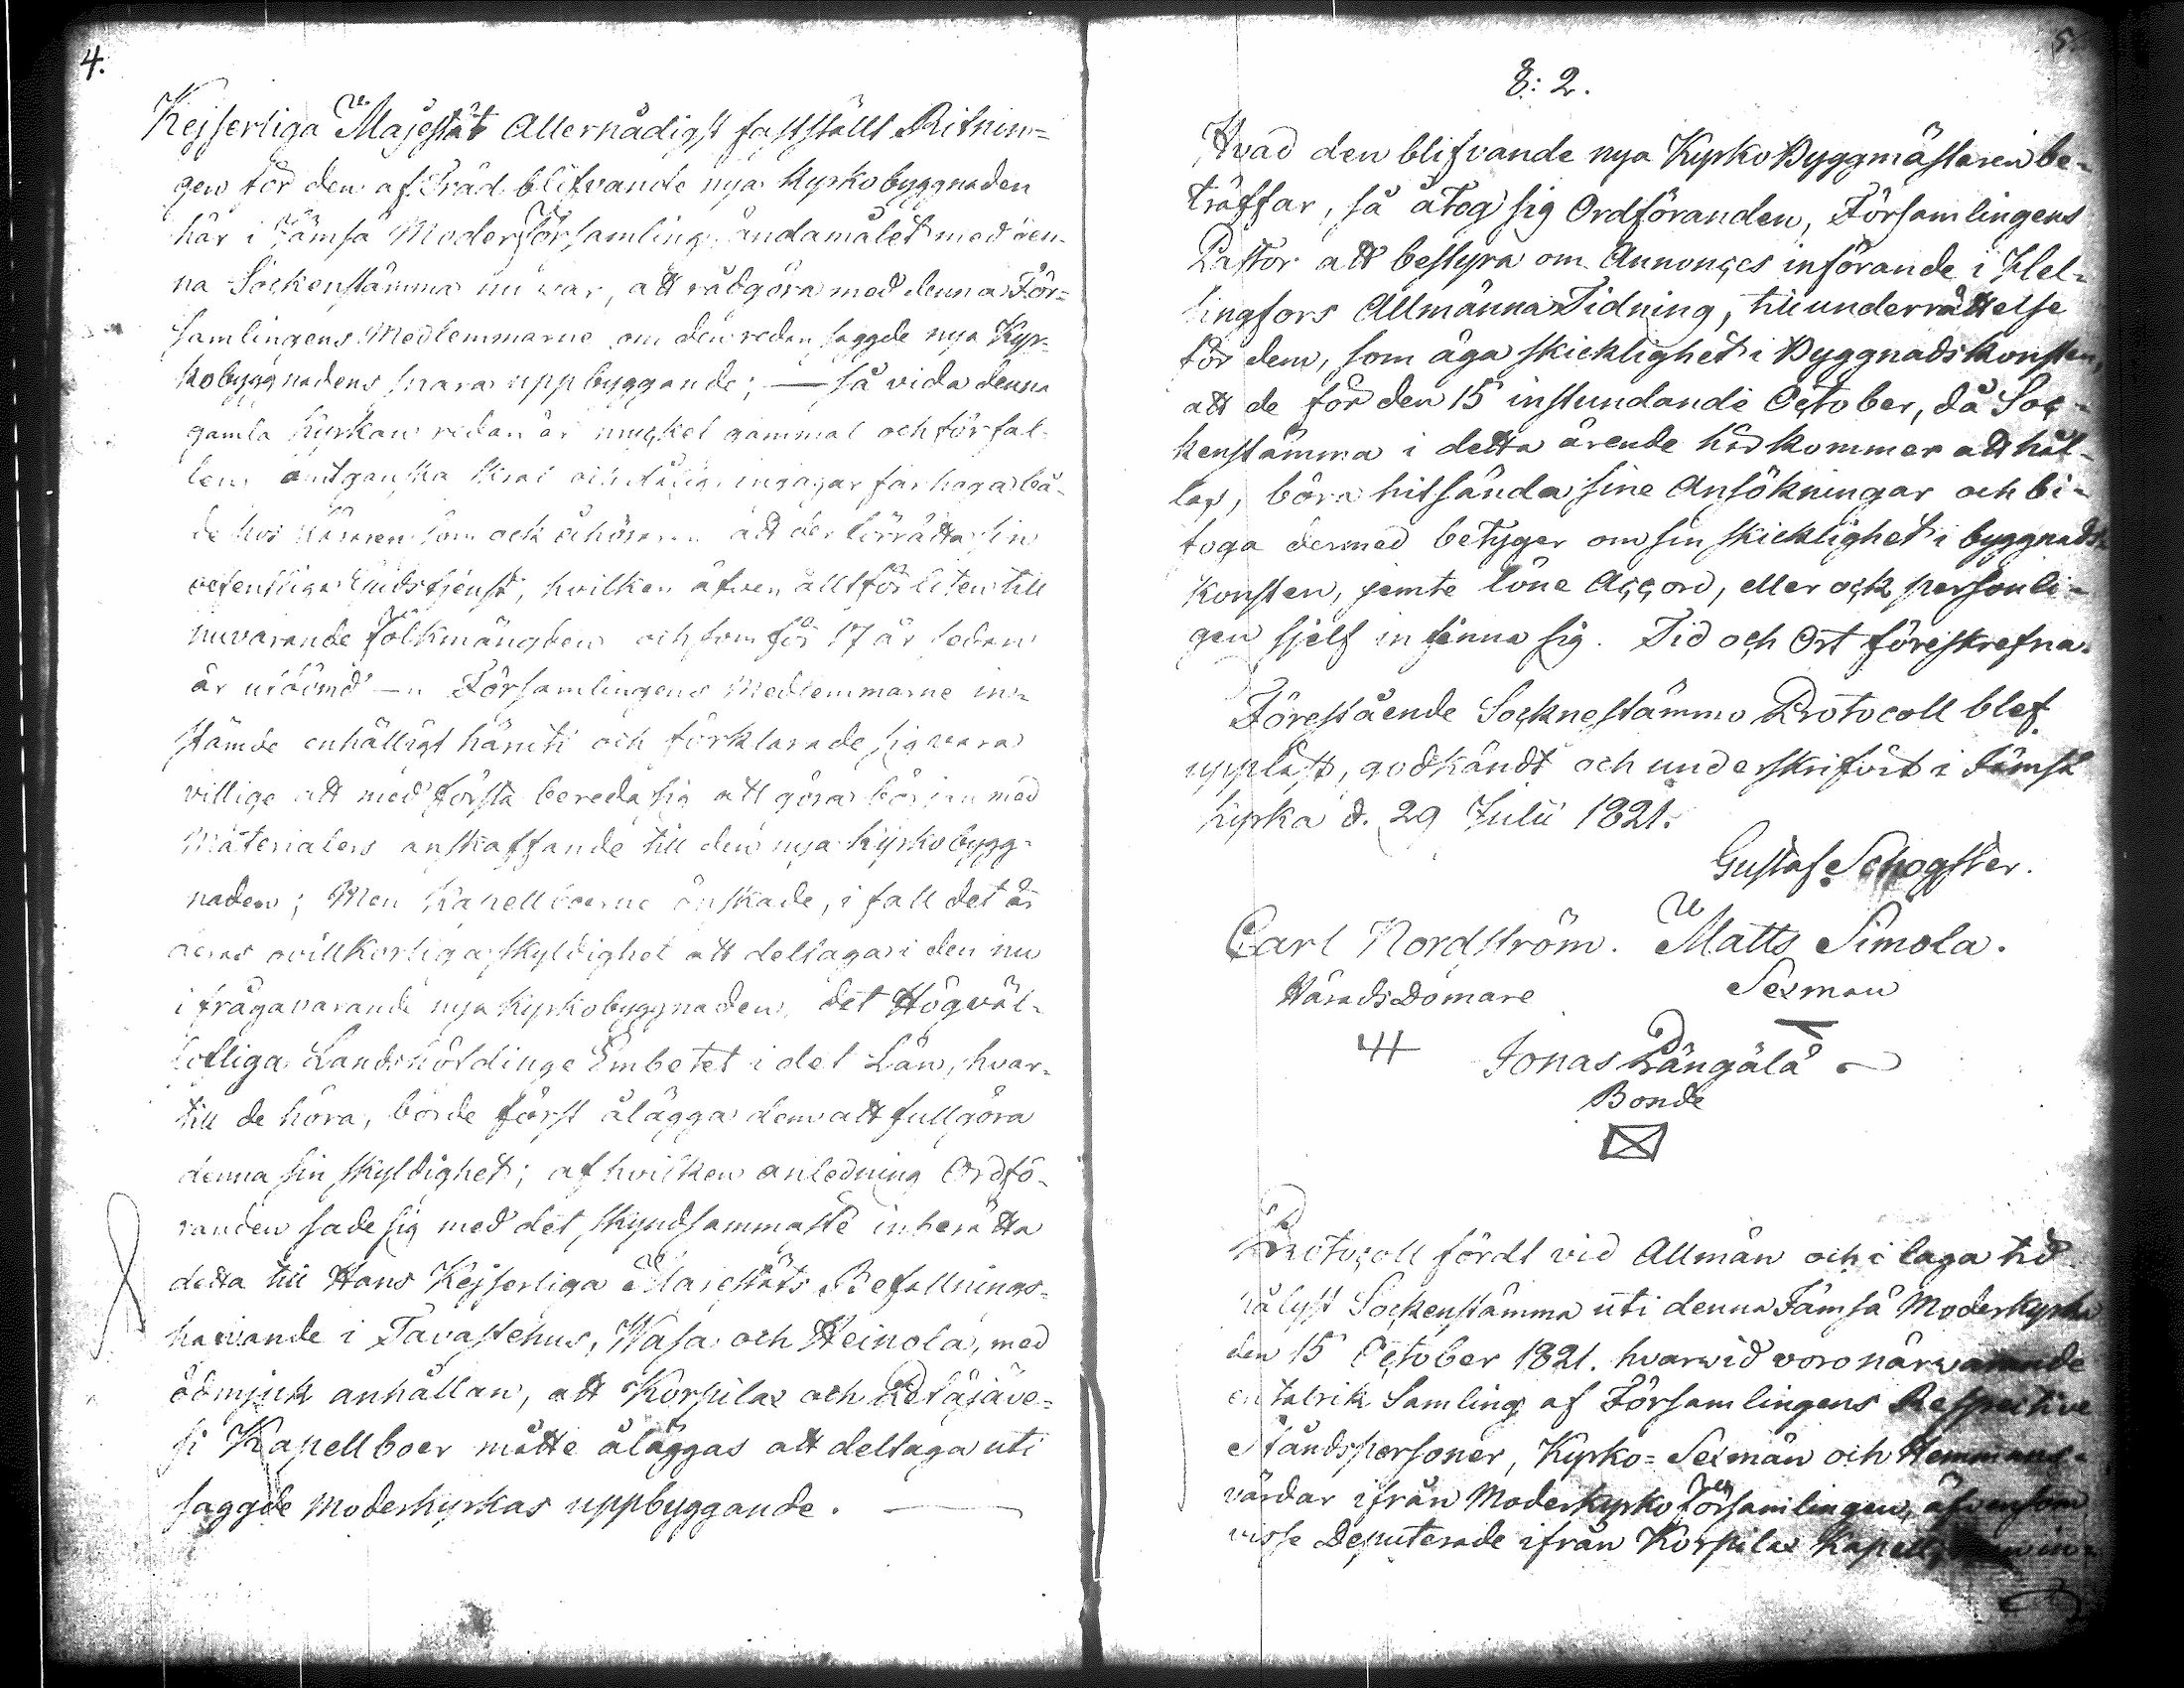 4.
Kejserliga Majestät Allernådigst fastställt Ritnin=
gen för den af Träd blifvande nya Kyrkobyggnaden
här i Jämsä Moderförsamling, ändamålet med den-
na Sockenstämma nu var, att rådgöra med denna För=
samlingens Medlemmarne om den redan saggde nya Kyr-
kobyggnadens snara uppbyggande; — så vida denna
gamla Kyrkan redan är mycket gammal och förfal-
len, samt ganska ingagar farhoga bå-
de hos som ock åhörarne att der förrätta sin
offentliga Gudstjenst, hvilken äfven alltför liten till
nuvarande folkmängden och som för 17 år sedan
är utdömd —. Församlingens Medlemmarne in-
stämde enhälligt häruti och förklarade sig vara
villige att med första bereda sig att göra början med
Materialers anskaffande till den nya Kyrkobygg-
naden; Men Kapellboerne önskade, i fall det är
deras ovillkorliga skyldighet att deltaga i den nu
i frågavarande nya Kyrkobyggnaden, det Högväl-
lofliga Landshöfdinge Embetet i det Län, hvar-
till de höra, borde först ålägga dem att fullgöra
denna sin skyldighet; af hvilken anledning Ordfö-
randen sade sig med det skyndsammaste inberätta
detta till Hans Kejserliga Majestäts Befallnings-
hafvande i Tavastehus, Wasa och Heinola, med
ödmjuk anhållan, att Korpilax och Petäjäve=
si Kapellboer måtte åläggas att deltaga uti
saggde Moderkyrkas uppbyggande. —
5.
§: 2.
Hvad den blifvande nya Kyrko Byggmästaren be-
träffar, så åtog sig Ordföranden, Församlingens
Pastor att bestyra om Annonçes införande i Hel-
singfors Allmänna Tidning, till underrättelse
för dem, som äga skicklighet i Byggnadskonsten,
att de för den 15 instundande October, då Soc-
kenstämma i detta ärende här kommer att hål-
las, böra hitsända sine Ansökningar och bi-
foga dermed betyger om sin skicklighet i byggnads-
Konsten, jemte löne Accord, eller ock personli-
gen sjelf infinna sig. Tid och Ort föreskrefna.
Förestående Socknestämmo Protocoll blef
uppläst, godkändt och underskrifvit i Jämsä
Kyrka d. 29 Julii 1821.
Gustaf Schogster.
Carl Nordström. Matts Simola.
HäradsDomare Sexman
Jonas Pängälä
Bonde
Protocoll fördt vid Allmän och i laga tid
pålyst Sockenstämma uti denna Jämsä Moderkyrka
den 15 October 1821. hvarvid voro närwarande
en talrik Samling af Församlingens Respective
Ståndspersoner, Kyrko= Sexmän och Hemmans-
värdar ifrån Moderkyrko församlingen, äfvensom
visse Deputerade ifrån Korpilax Kapell,